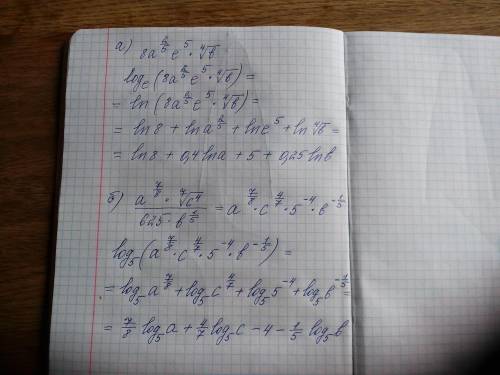 а) 8a^{2/5} e^5 · ∜b
log_e (8a^{2/5} e^5 · ∜b) =
= ln (8a^{2/5} e^5 · ∜b) =
= ln 8 + ln a^{2/5} + ln e^5 + ln ∜b =
= ln 8 + 0,4 ln a + 5 + 0,25 ln b
б) (a^{7/8} · ⁷√c⁴) / (625 · b^{1/5}) = a^{7/8} · c^{4/7} · 5^{-4} · b^{-1/5}
log_5 (a^{7/8} · c^{4/7} · 5^{-4} · b^{-1/5}) =
= log_5 a^{7/8} + log_5 c^{4/7} + log_5 5^{-4} + log_5 b^{-1/5} =
= 7/8 log_5 a + 4/7 log_5 c - 4 - 1/5 log_5 b